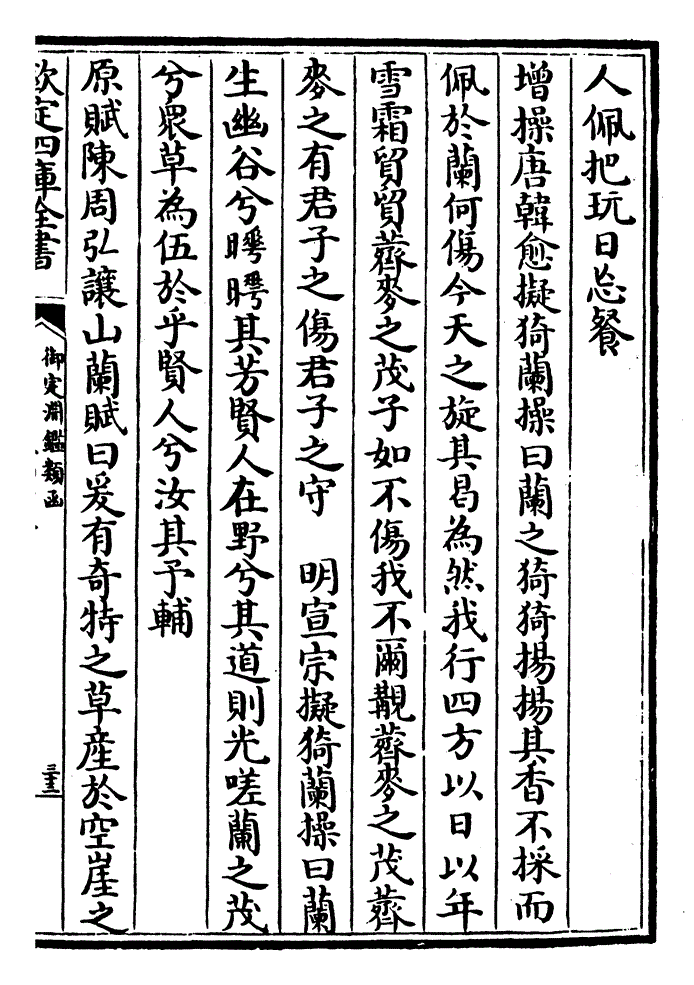 人佩把玩日忘餐
增操唐韓愈擬猗蘭操曰蘭之猗猗揚揚其香不採而
佩於蘭何傷今天之旋其曷為然我行四方以日以年
雪霜貿貿薺麥之茂子如不傷我不爾覯薺麥之茂薺
麥之有君子之傷君子之守　明宣宗擬猗蘭操曰蘭
生幽谷兮曄曄其芳賢人在野兮其道則光嗟蘭之茂
兮衆草為伍於乎賢人兮汝其予輔
原賦陳周弘讓山蘭賦曰爰有奇特之草産於空崖之
欽定四庫全書
御定淵鑑類函
三十三